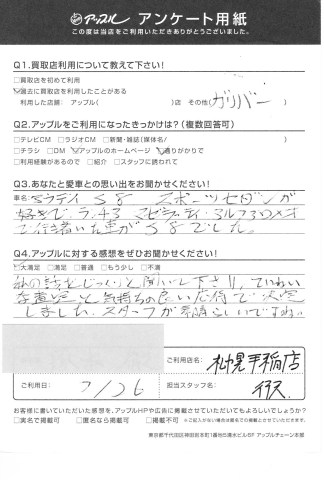 アップル アンケート用紙
この度は当店をご利用いただきありがとうございました。
Q1.買取店利用について教えて下さい!
□買取店を初めて利用
☑過去に買取店を利用したことがある
利用した店舗: アップル( )店 その他(ガリバー)
Q2.アップルをご利用になったきっかけは?(複数回答可)
□テレビCM □ラジオCM □新聞・雑誌(媒体名/ )
□チラシ □DM ☑アップルのホームページ ☑通りがかりで
□利用経験があるので □紹介 □スタッフに誘われて
Q3.あなたと愛車との思い出をお聞かせください!
車名:アウディ S8 スポーツセダンが
好きで、ランチア マセラティ アルファロメオ
車がS8でした。
Q4.アップルに対する感想をぜひお聞かせください!
☑大満足 □満足 □普通 □もう少し □不満
私の話をじっくりと聞いて下さり、ていねい
な査定と気持ちの良い応待で決定
しました。スタッフが素晴らしいですね。
ご利用店名: 札幌手稲店
ご利用日: 7/26
担当スタッフ名:
お客様に書いていただいた感想を、アップルHPや広告に掲載させていただいてもよろしいでしょうか?
□実名で掲載可 □匿名なら掲載可 □掲載不可
東京都千代田区神田岩本町1番地5清水ビル5F アップルチェーン本部